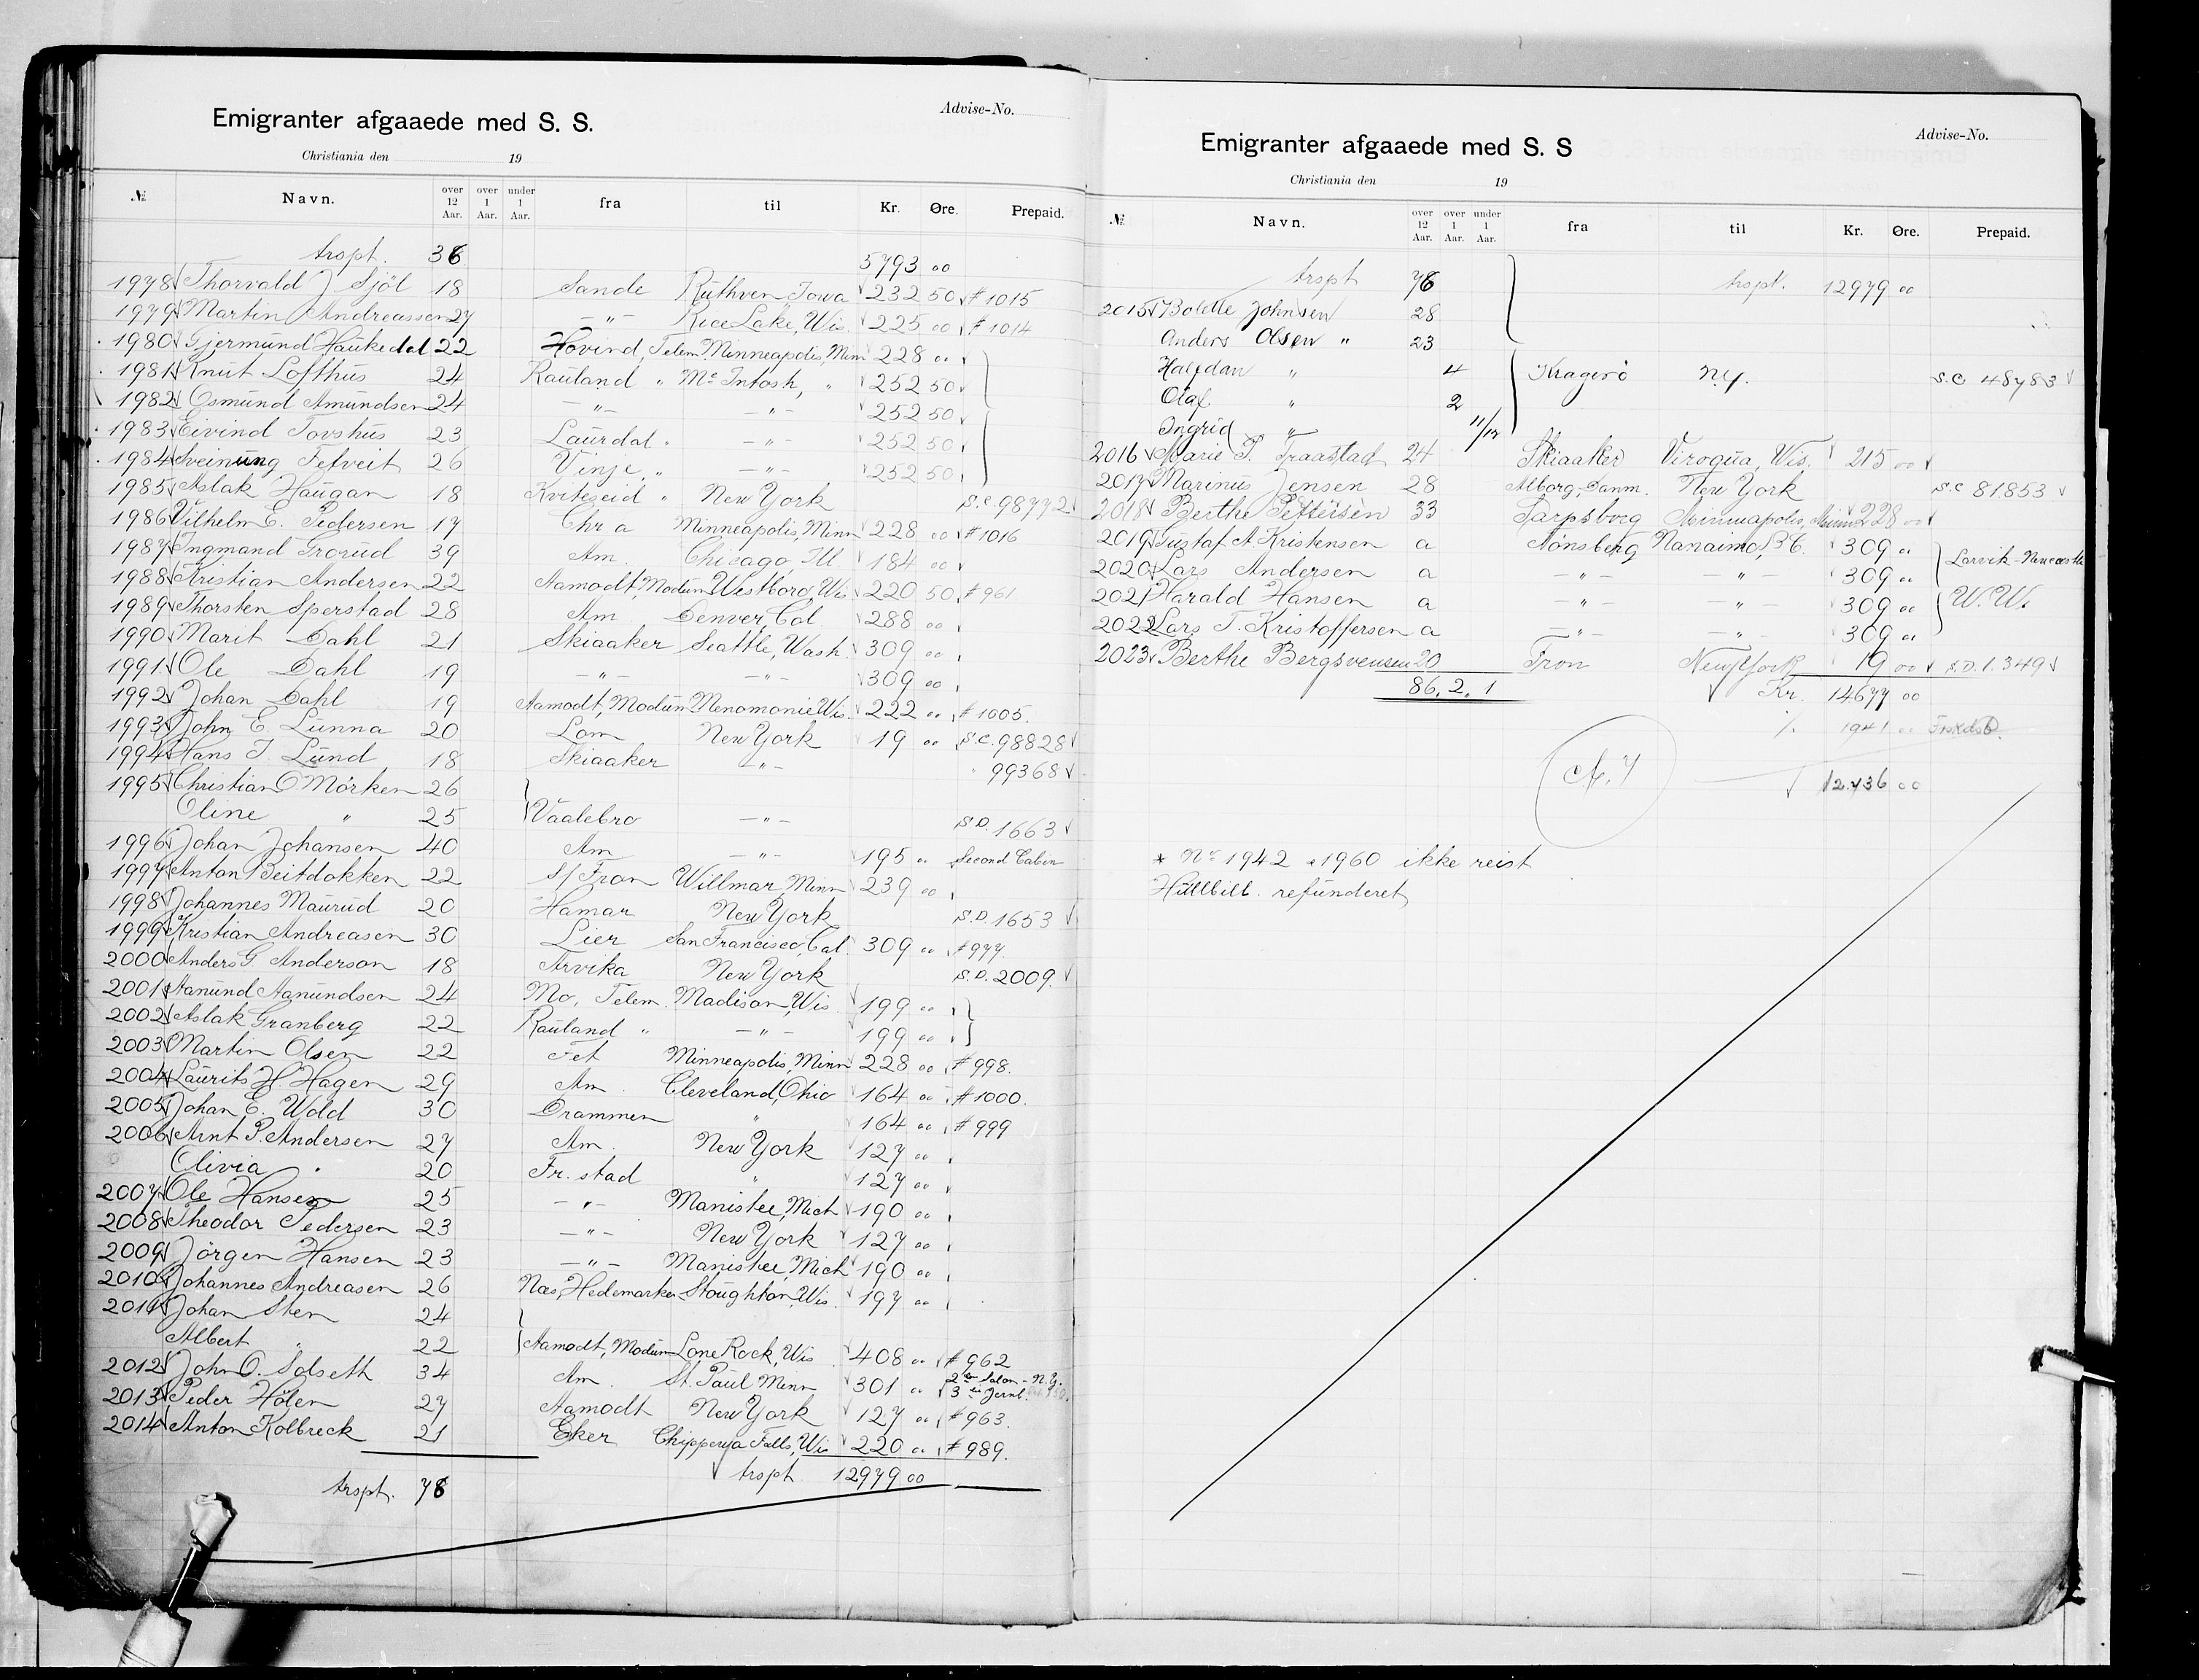 Emigranter afgaaede med S. S.
Advise-No.
Christiania den 19
№ Navn. over 12 Aar. over 1 Aar. under 1 Aar. fra til Kr. Øre. Prepaid.
trspt. 36 5793 00
1978 Thorvald J Sjöl 18 Sande Ruthven Iowa 232 50 # 1015
1979 Martin Andreassen 27 — " — Rice Lake, Wis. 225 00 # 1014
1980 Gjermund Haukedal 22 Hovind, Telem Minneapolis, Minn 228 00
1981 Knut Lofthus 24 Rauland " Mc Intosh, " 252 50
1982 Osmund Amundsen 24 — " — — " — 252 50
1983 Eivind Tovshus 23 Laurdal " — " — 252 50
1984 Sveinung Fetveit 26 Vinje " — " — 252 50
1985 Aslak Haugan 18 Kviteseid " New York S.C. 98772
1986 Vilhelm E. Pedersen 17 Chr a Minneapolis, Minn 228 00 # 1016
1987 Ingmand Grorud 39 Am. Chicago, Ill. 184 00
1988 Kristian Andersen 22 Aamodt, Modum Westboro, Wis 220 50 # 961
1989 Thorsten Sperstad 28 Am Denver, Col. 288 00
1990 Marit Dahl 21 Skiaaker Seattle, Wash. 309 00
1991 Ole Dahl 19 — " — — " — 309 00
1992 Johan Dahl 19 Aamodt, Modum Menomonie Wis. 222 00 # 1005.
1993 John E. Lunna 20 Lom New York 19 00 S.C. 98828
1994 Hans T. Lund 18 Skiaaker — " — " 99368
1995 Christian O Mörken 26
Oline " 25 Vaalebro — " — S.D. 1663
1996 Johan Johansen 40 Am — " — 195 00 Second Cabin
1997 Anton Beitdokken 22 S/Fron Willmar, Minn 239 00
1998 Johannes Maurud 20 Hamar New York S.D. 1653
1999 Kristian Andreasen 30 Lier San Francisco, Cal. 309 00 # 977.
2000 Anders G Anderson 18 Arvika New York S.D. 2009.
2001 Aanund Aanundsen 24 Mo, Telem. Madison, Wis 199 00
2002 Aslak Granberg 22 Rauland " — " — 199 00
2003 Martin Olsen 22 Fet Minneapolis, Minn 228 00 # 998.
2004 Laurits H. Hagen 29 Am. Cleveland, Ohio 164 00 # 1000.
2005 Johan E. Wold 30 Drammen " 164 00 # 999
2006 Arnt P. Andersen 27 Am. New York 127 00
Olivia " 20 Fr. stad " 127 00
2007 Ole Hansen 25 — " — Manistee, Mich 190 00
2008 Theodor Pedersen 23 — " — New York 127 00
2009 Jörgen Hansen 23 — " — Manistee, Mich 190 00
2010 Johannes Andreasen 26 Næs, Hedemarken Stoughton, Wis. 197 00
2011 Johan Sten 24
Albert " 22 Aamodt, Modum Lone Rock, Wis 408 00 # 962
2012 John O. Solseth 34 Am. St. Paul Minn 301 00 2den Salon - N.Y. 3die Jernb.
2013 Peder Hølen 27 Aamodt New York 127 00 # 963.
2014 Anton Kolbreck 21 Eker Chippewa Falls, Wis 220 00 # 989.
trspt. 12979 00
trspt. 78
Emigranter afgaaede med S. S
Advise-No.
Christiania den 19
№ Navn. over 12 Aar. over 1 Aar. under 1 Aar. fra til Kr. Øre. Prepaid.
trspt 78 trspt. 12979 00
2015 Bolette Johnsen 28
Anders Olsen " 23
Halfdan " 4 Kragerö N.Y. S.C 48783
Olaf " 2
Ingrid " 11/12
2016 Marie P. Traastad 24 Skiaaker Viroqua, Wis. 215 00
2017 Marinus Jensen 28 Alborg, Danm. New York S.C 81853
2018 Berthe Pettersen 33 Sarpsborg Minneapolis, Minn 228 00
2019 Gustaf A. Kristensen a Tönsberg Nanaimo, B.C. 309 00
2020 Lars Andersen a — " — — " — 309 00 Larvik-Newcastle
2021 Harald Hansen a — " — — " — 309 00 W.W.
2022 Lars T. Kristoffersen a — " — — " — 309 00
2023 Berthe Bergsvensen 20 Fron New York 19 00 S.D. 1.349
86. 2. 1 Kr. 14677 00
1941 00
12.736 00
* No 1942 & 1960 ikke reist
Hullbill. refunderet